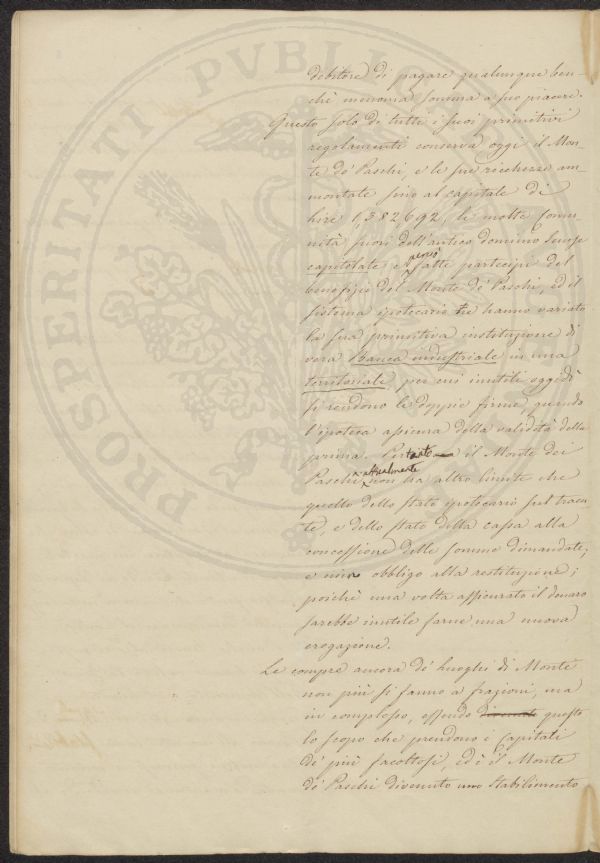 debitore di pagare qualunque ben-
chè menoma somma a suo piacere.
Questo solo di tutti i suoi primitivi
regolamenti conserva oggi il Mon-
te de' Paschi, e le sue ricchezze am-
montate sino al capitale di
Lire 1,382,692, le molte Comu-
nità fuori dell'antico dominio Senese
capitolate e perciò fatte partecipi del
benefizio del Monte de' Paschi, ed il
sistema ipotecario ne hanno variato
la sua primitiva instituzione di
vera Banca industriale in una
territoriale, per cui inutili oggidì
si rendono le doppie firme, quando
l'ipoteca assicura della validità della
prima. Pertanto il Monte dei
Paschi attualmente non ha altro limite che
quello dello stato ipotecario sul tracen-
te, e dello stato della cassa alla
concessione delle somme dimandate;
e niun obbligo alla restituzione;
poichè una volta assicurato il denaro
sarebbe inutile farne una nuova
erogazione.
Le compre ancora de' Luoghi di Monte
non più si fanno a frazioni, ma
in complesso, essendo divenuto questo
lo scopo che prendono i capitali
de' più facoltosi, ed è il Monte
de' Paschi divenuto uno stabilimento
PVBLICAE
PROSPERITATI